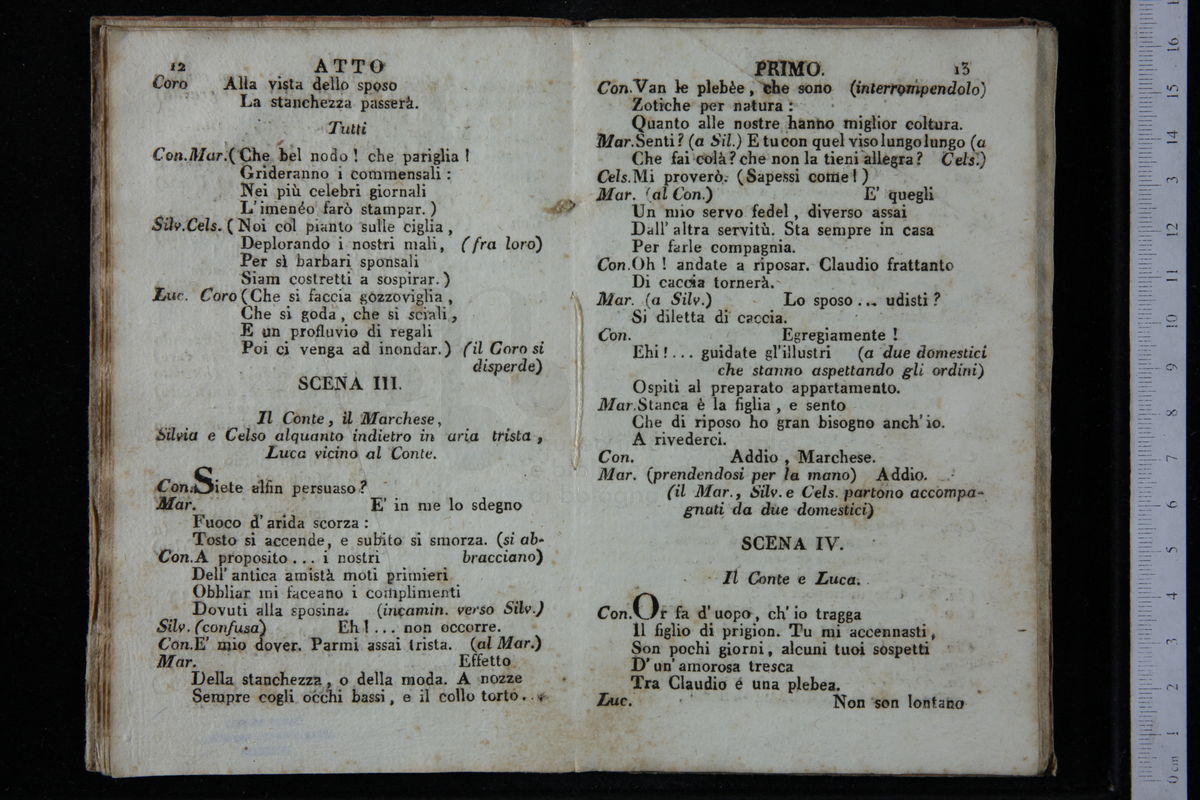 12 ATTO
Coro Alla vista dello sposo
La stanchezza passerà.
Tutti
Con.Mar.(Che bel nodo ! che pariglia !
Grideranno i commensali :
Nei più celebri giornali
L'imenéo farò stampar. )
Silv.Cels. ( Noi col pianto sulle ciglia ,
Deplorando i nostri mali, (fra loro)
Per sì barbari sponsali
Siam costretti a sospirar. )
Luc. Coro (Che si faccia gozzoviglia ,
Che si goda , che si sciali ,
E un profluvio di regali
Poi ci venga ad inondar. ) (il Coro si
disperde)
SCENA III.
Il Conte, il Marchese,
Silvia e Celso alquanto indietro in aria trista ,
Luca vicino al Conte.
Con.Siete alfin persuaso ?
Mar. E' in me lo sdegno
Fuoco d'arida scorza :
Tosto si accende, e subito si smorza. (si ab-
Con.A proposito ... i nostri bracciano)
Dell'antica amistà moti primieri
Obbliar mi faceano i complimenti
Dovuti alla sposina. (incamin. verso Silv.)
Silv. (confusa) Eh ! ... non occorre.
Con.E' mio dover. Parmi assai trista. (al Mar.)
Mar. Effetto
Della stanchezza , o della moda. A nozze
Sempre cogli occhi bassi , e il collo torto...
PRIMO. 13
Con.Van le plebèe , che sono (interrompendolo)
Zotiche per natura :
Quanto alle nostre hanno miglior coltura.
Mar.Senti ? (a Sil.) E tu con quel viso lungo lungo (a
Che fai colà ? che non la tieni allegra ? Cels.)
Cels.Mi proverò. (Sapessi come ! )
Mar. (al Con.) E' quegli
Un mio servo fedel , diverso assai
Dall'altra servitù. Sta sempre in casa
Per farle compagnia.
Con.Oh ! andate a riposar. Claudio frattanto
Di caccia tornerà.
Mar. (a Silv.) Lo sposo ... udisti ?
Si diletta di caccia.
Con. Egregiamente !
Ehi ! ... guidate gl'illustri (a due domestici
che stanno aspettando gli ordini)
Ospiti al preparato appartamento.
Mar.Stanca è la figlia , e sento
Che di riposo ho gran bisogno anch'io.
A rivederci.
Con. Addio , Marchese.
Mar. (prendendosi per la mano) Addio.
(il Mar., Silv. e Cels. partono accompa-
gnati da due domestici)
SCENA IV.
Il Conte e Luca.
Con.Or fa d'uopo , ch'io tragga
Il figlio di prigion. Tu mi accennasti ,
Son pochi giorni , alcuni tuoi sospetti
D'un'amorosa tresca
Tra Claudio e una plebea.
Luc. Non son lontano